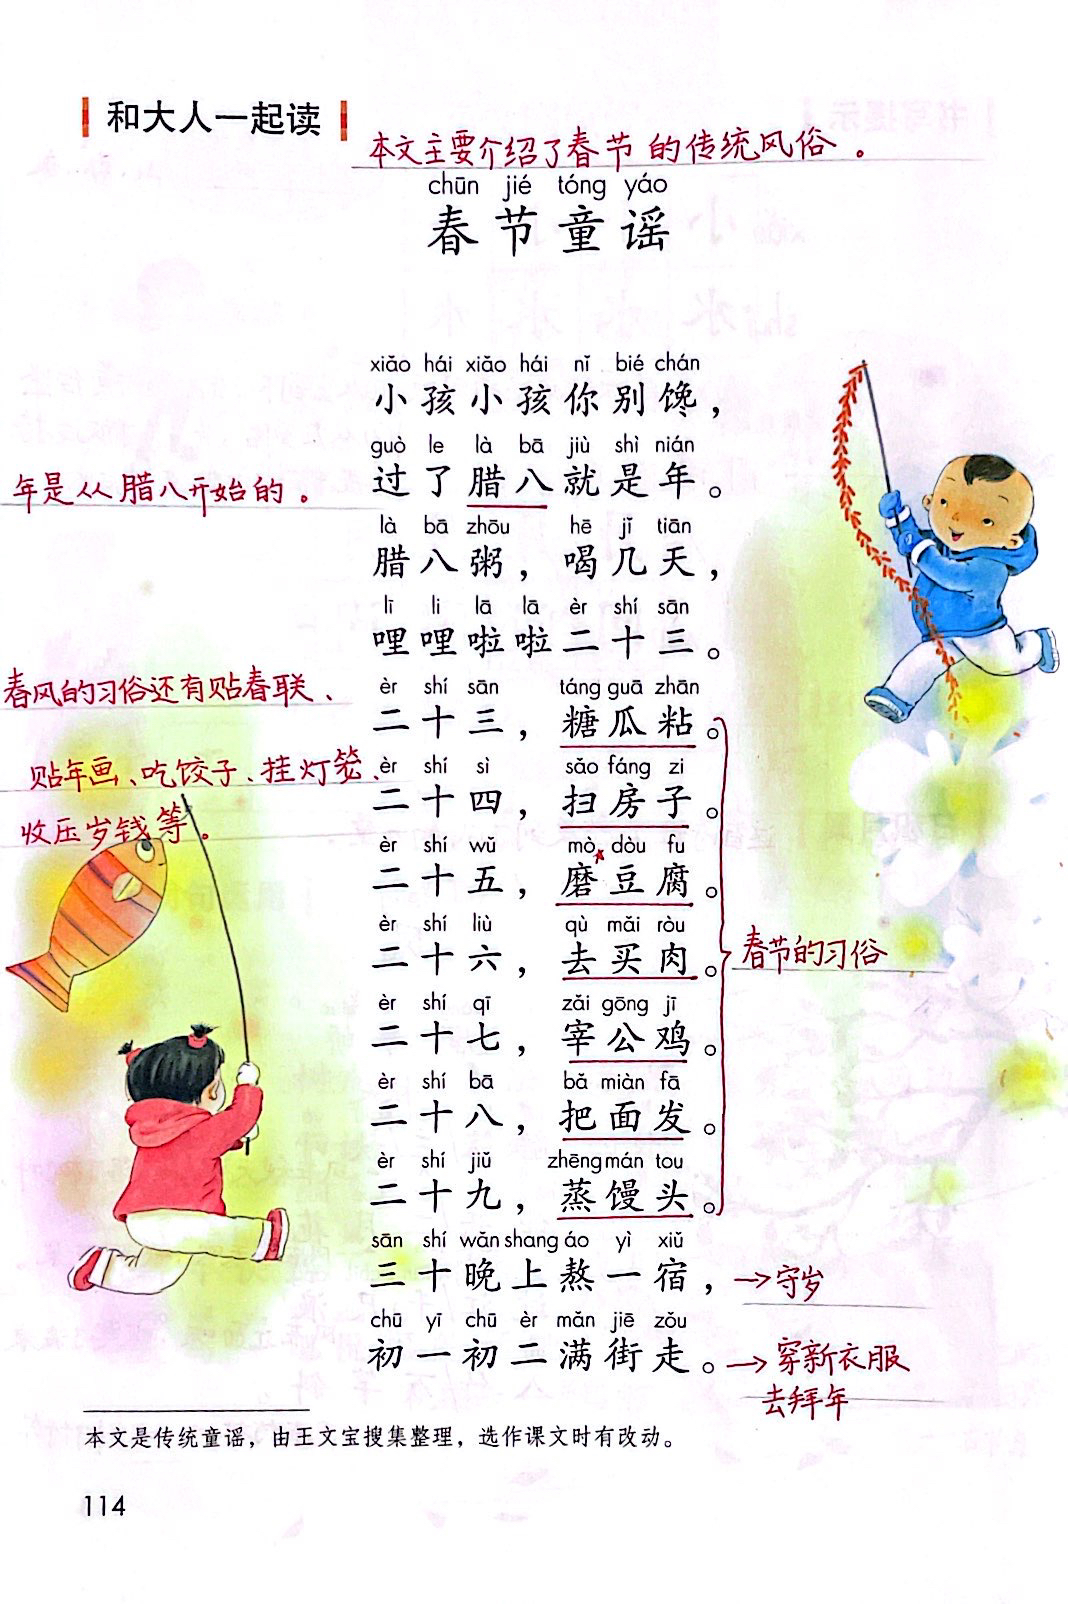 和大人一起读
本文主要介绍了春节的传统风俗。
chūn jié tóng yáo
春节童谣
xiǎo hái xiǎo hái nǐ bié chán
小孩小孩你别馋，
guò le là bā jiù shì nián
过了腊八就是年。
年是从腊八开始的。
là bā zhōu hē jǐ tiān
腊八粥，喝几天，
lī li lā lā èr shí sān
哩哩啦啦二十三。
春风的习俗还有贴春联、
贴年画、吃饺子、挂灯笼、
收压岁钱等。
èr shí sān táng guā zhān
二十三，糖瓜粘。
èr shí sì sǎo fáng zi
二十四，扫房子。
èr shí wǔ mò dòu fu
二十五，磨豆腐。
èr shí liù qù mǎi ròu
二十六，去买肉。
春节的习俗
èr shí qī zǎi gōng jī
二十七，宰公鸡。
èr shí bā bǎ miàn fā
二十八，把面发。
èr shí jiǔ zhēng mán tou
二十九，蒸馒头。
sān shí wǎn shang áo yì xiǔ
三十晚上熬一宿，→守岁
chū yī chū èr mǎn jiē zǒu
初一初二满街走。→穿新衣服
去拜年
本文是传统童谣，由王文宝搜集整理，选作课文时有改动。
114